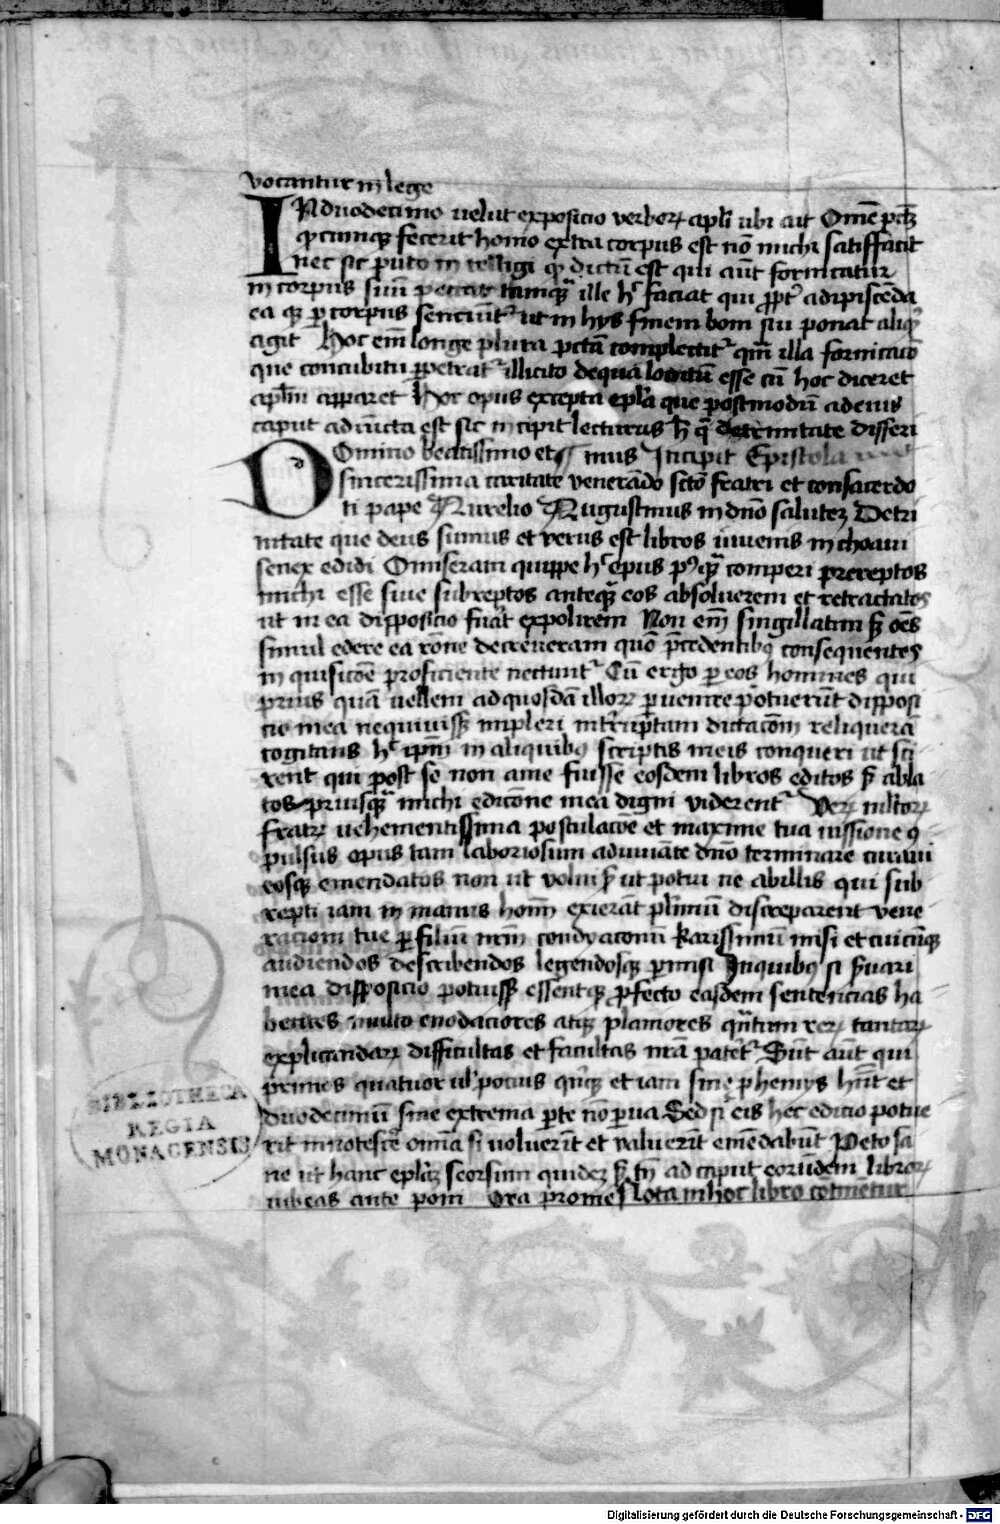 vocantur in lege
IN duodecimo uelut exposicio verborꝝ apl̄i ubi ait Om̄e pctm̄
qͦcumqꝫ fecerit homo extra corpus est nō michi satisffacit
nec sic puto intelligi qͦ dictū est qui aūt fornicatur
in corpus suū peccat tamqͣ ille hͦ faciat qui ꝓpt̾ adipiscēda
ea qꝫ ꝑ corpus senciūt̾ ut in hys finem boni sui ponat aliqͥd
agit Hoc em̄ longe plura pctā complectit̾ qm̄ illa fornicacō
que concubitu ꝑpetrat̾ illicito de qua locutū esse cū hoc diceret
apl̄m apparet Hoc opus excepta epl̄a que postmodū ad eius
caput adiūcta est sic incipit lecturus hͨ qͣ de trinitate disseri
mus Incipit Epistola
DOmino beatissimo et
sincerissima caritate venerādo sctō fratri et consacerdo
ti pape Aurelio Augustinus in dn̄o saluteꝫ De tri
nitate que deus sumus et verus est libros iuuenis inchoaui
senex edidi Omiseram quippe hͦ opus pꝰqͣ comperi prereptos
michi esse siue subreptos anteqͣ eos absoluerem et retractatos
ut mea disposicio fuāt expolirem Non em̄ singillatim sꝫ oēs
simul edere ea rōne decreueram quō p̄cedentibꝫ consequentes
inquisicōe proficiente nectunt̾ Cū ergo ꝑ eos homines qui
prius quā uellem ad quosdā illorꝝ ꝑuenire potuerūt disposi
cio mea nequiuissꝫ impleri int̾ruptam dictacōm reliquerā
cogitans hͦ ip̄m in aliquibꝫ scriptis meis conqueri ut sci
rent qui possēt non a me fuisse eosdem libros editos sꝫ abla
tos priusqͣ michi edicōne mea digni viderent̾ Verꝝ multorꝝ
fratrꝫ uehementissima postulacōe et maxime tua iussione cō
pulsus opus tam laboriosum adiuuāte dn̄o terminare curaui
eosqꝫ emendatos non ut volui sꝫ ut potui ne ab illis qui sub
repti iam in manus hoīm exierāt pl̄imū discreparent vene
racioni tue ꝑ filiū nr̄m condyaconū karissimū misi et cuicūqꝫ
audiendos describendos legendosqꝫ ꝑmisi In quibꝫ si ẜuari
mea disposicio potuissꝫ essentqꝫ ꝓfecto easdem sentencias ha
bentes multo enodaciores atqꝫ planiores qͣntum rerꝝ tantarꝝ
explicandarꝝ difficultas et facultas nr̄a patēt̾ Sūt aūt qui
primos quatuor ul̾ pocius qͥnqꝫ et iam sine ꝓhemys hn̄t et
duodecimū sine extrema ꝑte nō ꝑua Sed si eis hec edicio potue
rit innotesc̾e om̄ia si uoluerīt et valuerīt emēdabūt Peto sa
ne ut hanc epl̄aꝫ seorsum quideꝫ sꝫ tn̄ ad caput eorūdem librorꝝ
iubeas ante poni Ora pro me Nota in hoc libro cōtinētur
BIBLIOTHECA
REGIA
MONACENSIS
Digitalisierung gefördert durch die Deutsche Forschungsgemeinschaft - DFG